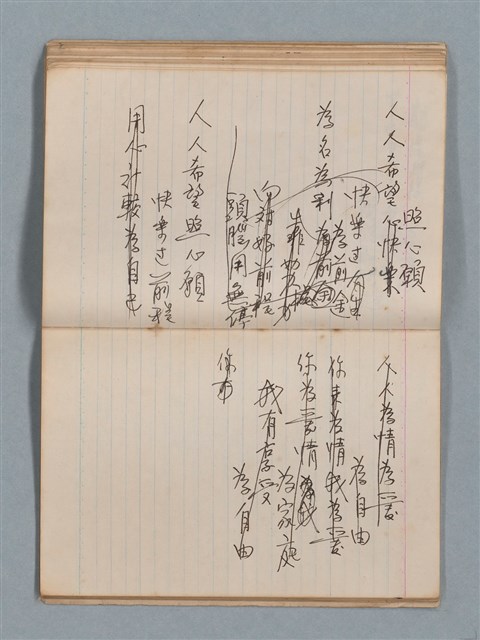 人人希望你快樂
照心願
快樂過自由
為前途
為名為利
向対好前程
頭腦用無停
人人希望照心願
快樂过前程
用心計較為自由
人人為情為愛
為自由
你来為情我為愛
你為愛情為我
為家庭
我有享受
為自由
你有